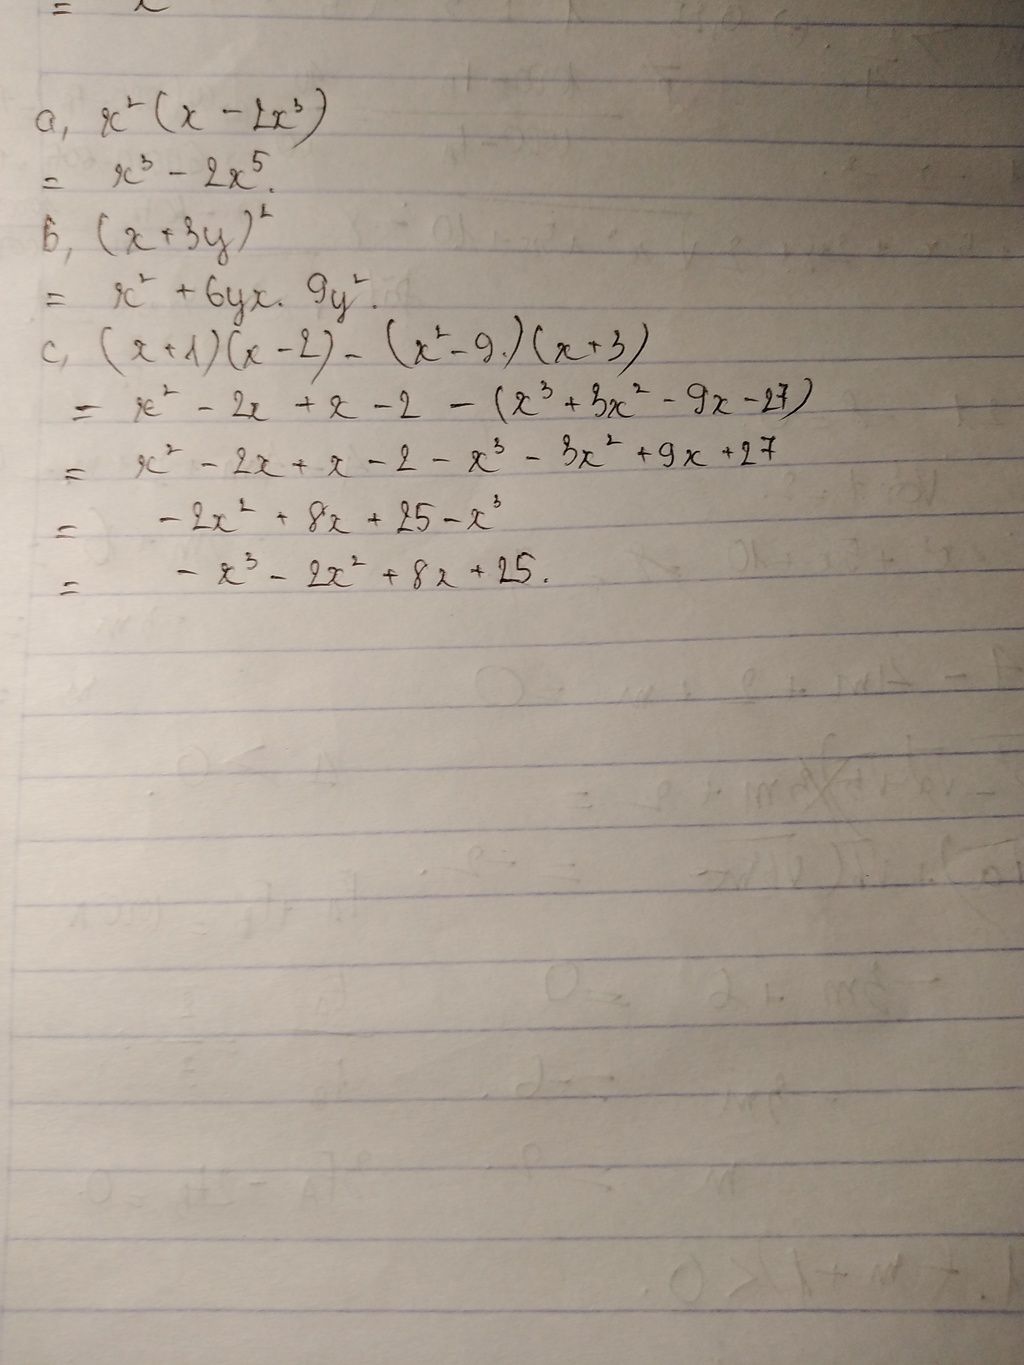 a, x² (x - 2x³)
= x³ - 2x⁵.
b, (x + 3y)²
= x² + 6yx. 9y².
c, (x + 1)(x - 2) - (x² - 9.)(x + 3)
= x² - 2x + x - 2 - (x³ + 3x² - 9x - 27)
= x² - 2x + x - 2 - x³ - 3x² + 9x + 27
= - 2x² + 8x + 25 - x³
= - x³ - 2x² + 8x + 25.